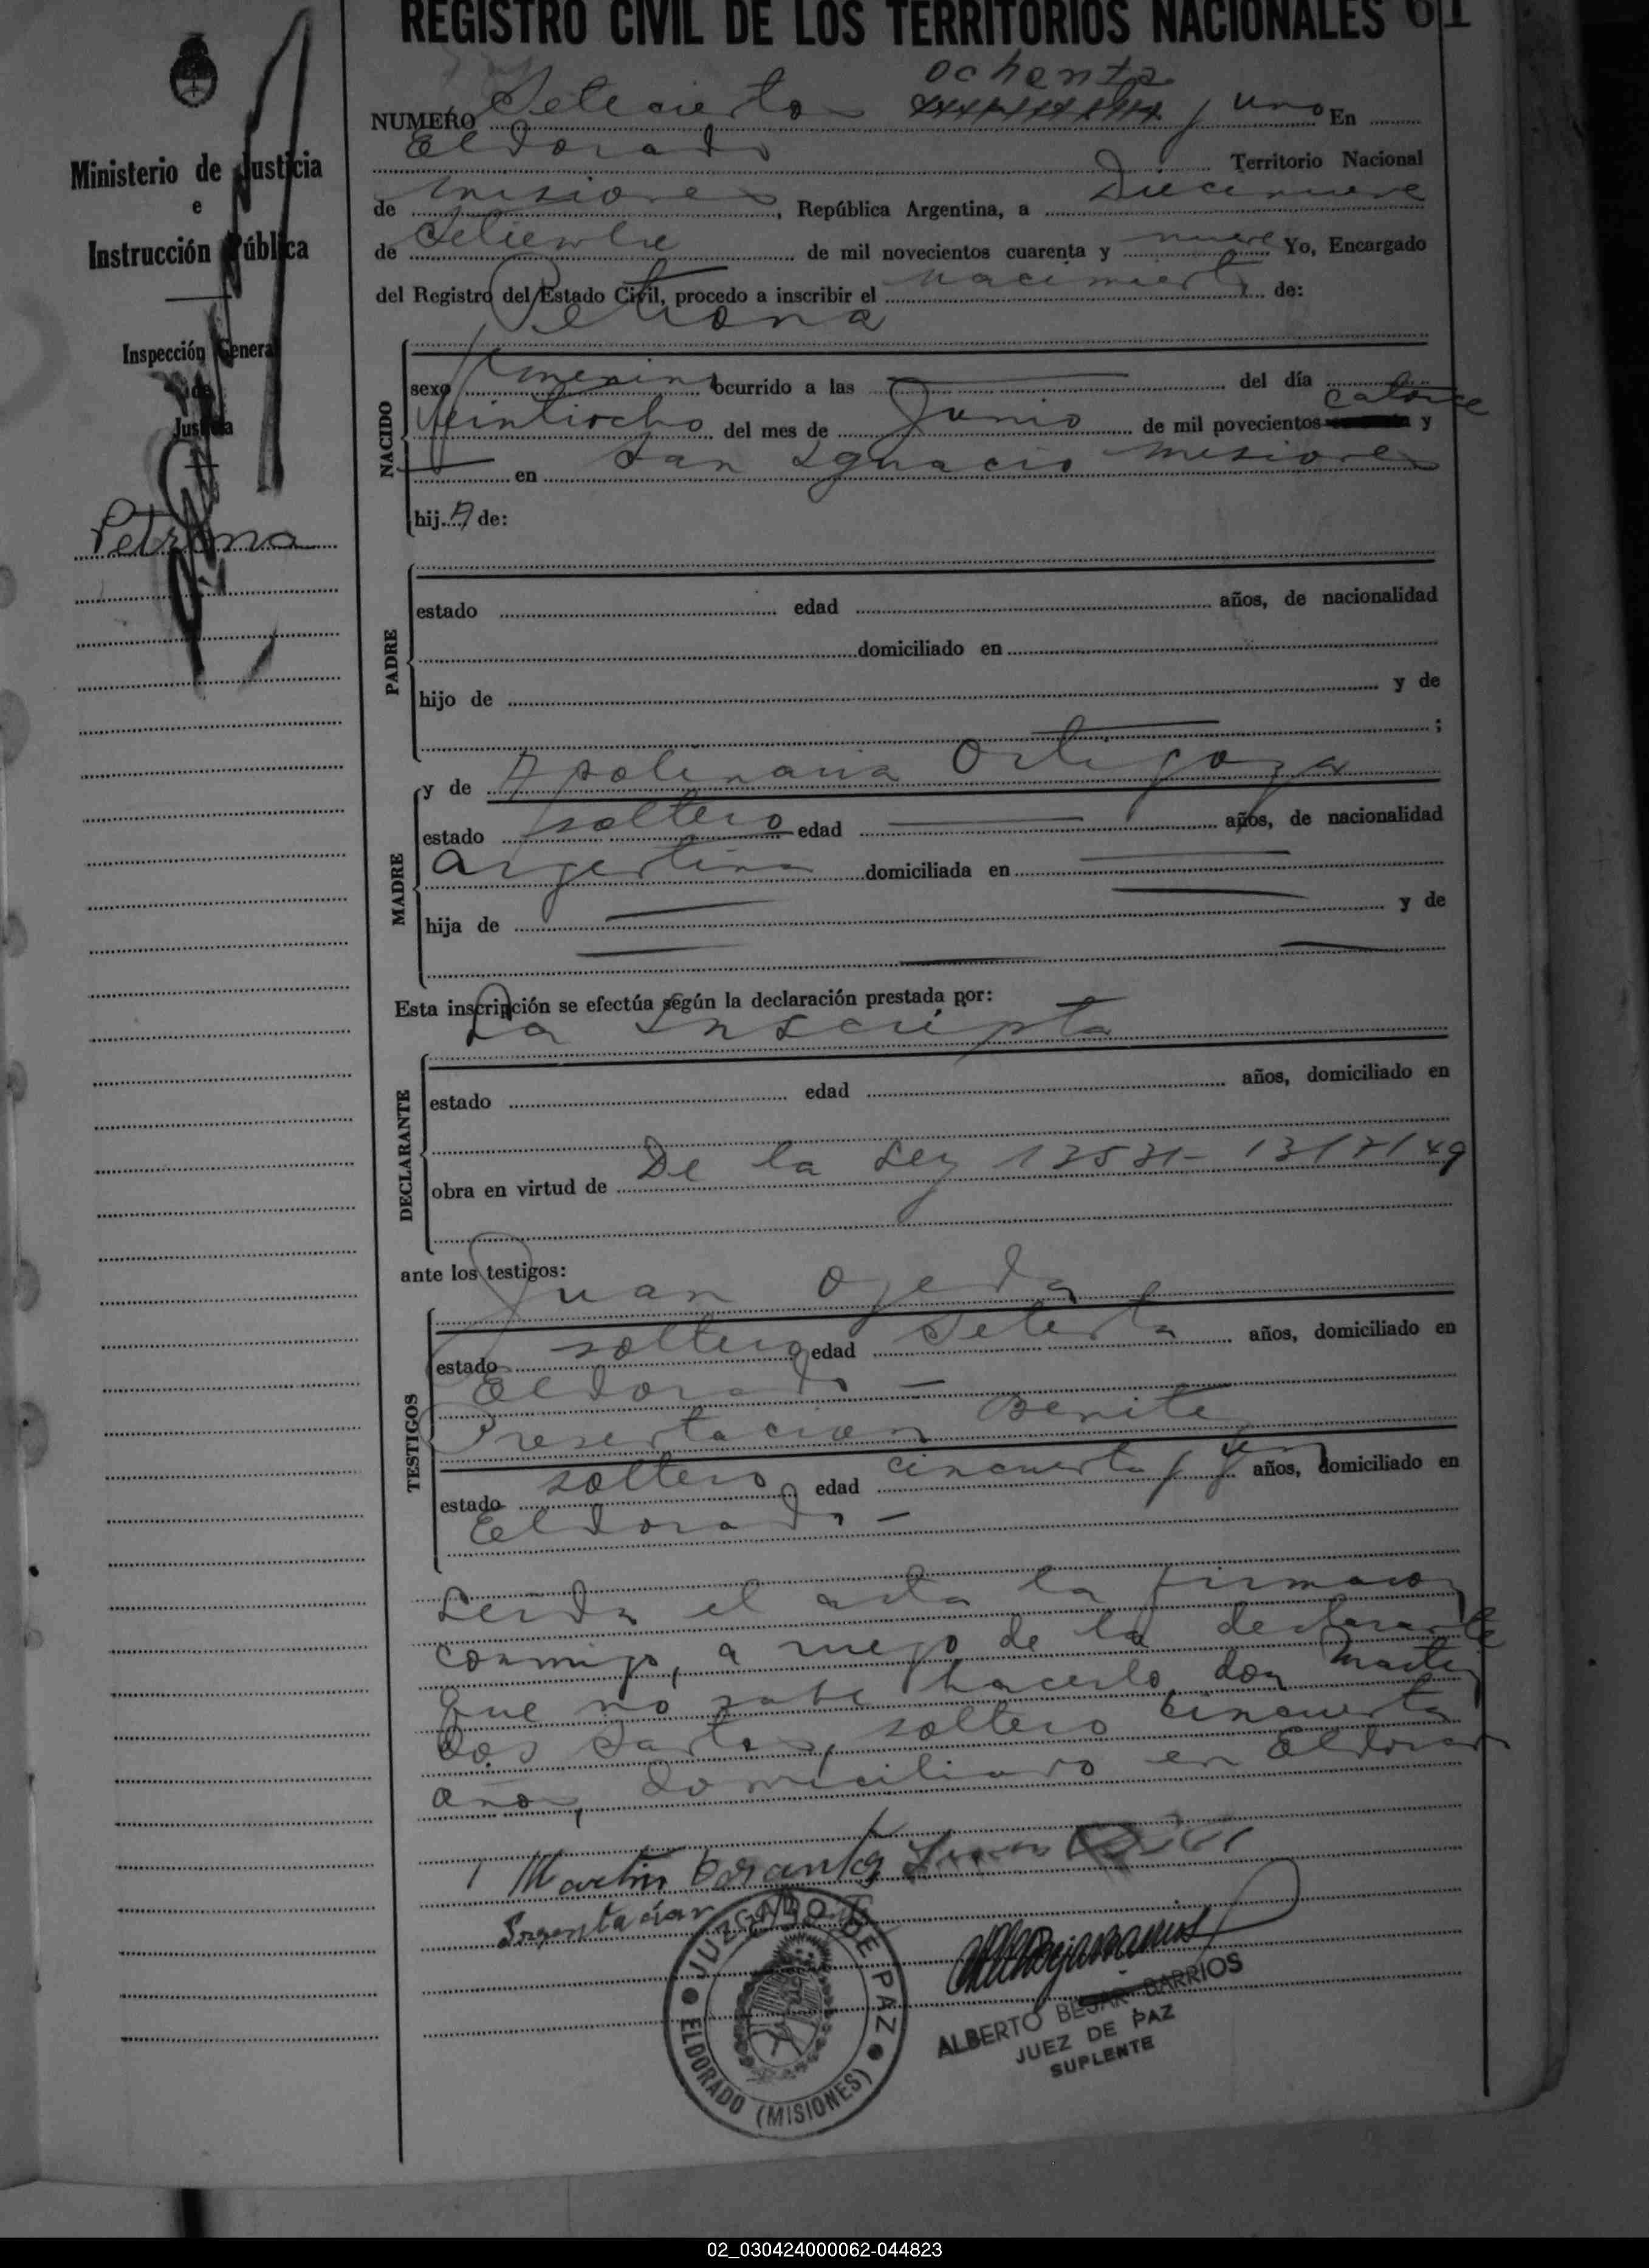 REGISTRO CIVIL DE LOS TERRITORIOS NACIONALES 61
Ministerio de Justicia
e
Instrucción Pública
Inspección General
de
Justicia
Petrona
ochenta
NUMERO Setecientos y uno En
Eldorado Territorio Nacional
de Misiones, República Argentina, a Diecinueve
de Setiembre de mil novecientos cuarenta y nueve Yo, Encargado
del Registro del Estado Civil, procedo a inscribir el nacimiento de:
Petrona
NACIDO
sexo femenino ocurrido a las del día
catorce
Veintiocho del mes de Junio de mil novecientos y
en San Ignacio Misiones
hija de:
PADRE
estado edad años, de nacionalidad
domiciliado en
hijo de y de
;
MADRE
y de Apolinaria Ortigoza
estado soltero edad años, de nacionalidad
argentina domiciliada en
hija de y de
Esta inscripción se efectúa según la declaración prestada por:
La Inscripta
DECLARANTE
estado edad años, domiciliado en
obra en virtud de De la Ley
ante los testigos:
Juan Ojeda
TESTIGOS
estado soltero edad Setenta años, domiciliado en
Eldorado -
Presentacion Benite
estado soltero edad cincuenta y años, domiciliado en
Eldorado -
Leida el acta la firmaron
conmigo, a ruego de la declarante
que no sabe hacerlo don Martin
Dos Santos, soltero cincuenta
años, domiciliado en Eldorado
Martin
JUZGADO DE PAZ
ELDORADO (MISIONES)
ALBERTO BEJAR BARRIOS
JUEZ DE PAZ
SUPLENTE
02_030424000062-044823